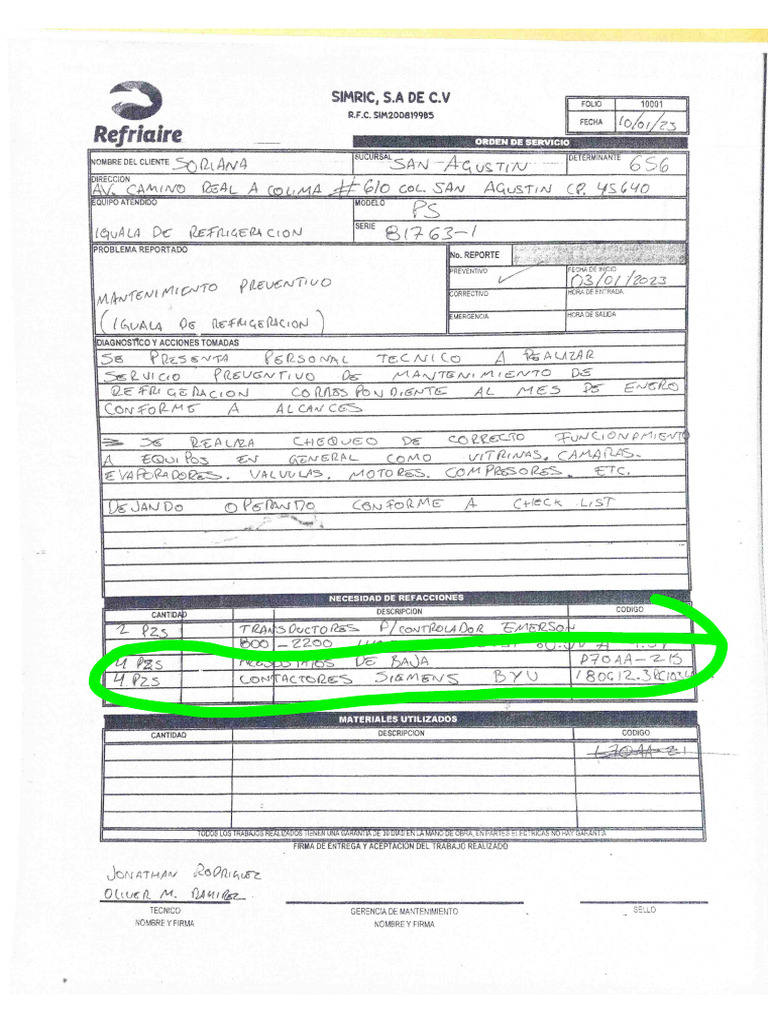 Refriaire
SIMRIC, S.A DE C.V
R.F.C. SIM200819985
FOLIO 10001
FECHA 10/01/23
ORDEN DE SERVICIO
NOMBRE DEL CLIENTE SORIANA
SUCURSAL SAN-AGUSTIN
DETERMINANTE 656
DIRECCION
AV. CAMINO REAL A COLIMA #610 COL. SAN AGUSTIN CP. 45640
EQUIPO ATENDIDO
IGUALA DE REFRIGERACION
MODELO PS
SERIE 81763-1
PROBLEMA REPORTADO
MANTENIMIENTO PREVENTIVO
(IGUALA DE REFRIGERACION)
No. REPORTE
PREVENTIVO ✓
FECHA DE INICIO
03/01/2023
CORRECTIVO
HORA DE ENTRADA
EMERGENCIA
HORA DE SALIDA
DIAGNOSTICO Y ACCIONES TOMADAS
SE PRESENTA PERSONAL TECNICO A REALIZAR
SERVICIO PREVENTIVO DE MANTENIMIENTO DE
REFRIGERACION CORRESPONDIENTE AL MES DE ENERO
CONFORME A ALCANCES
SE REALIZA CHEQUEO DE CORRECTO FUNCIONAMIENTO
A EQUIPOS EN GENERAL COMO VITRINAS, CAMARAS.
EVAPORADORES, VALVULAS, MOTORES, COMPRESORES, ETC.
DEJANDO OPERANDO CONFORME A CHECK LIST
NECESIDAD DE REFACCIONES
CANTIDAD DESCRIPCION CODIGO
2 PZS TRANSDUCTORES P/CONTROLADOR EMERSON
800-2200
4 PZS DE BAJA P70AA-2
4 PZS CONTACTORES SIEMENS BYU
MATERIALES UTILIZADOS
CANTIDAD DESCRIPCION CODIGO
TODOS LOS TRABAJOS REALIZADOS TIENEN UNA GARANTIA DE 30 DIAS EN LA MANO DE OBRA, EN PARTES ELECTRICAS NO HAY GARANTIA
FIRMA DE ENTREGA Y ACEPTACION DEL TRABAJO REALIZADO
JONATHAN RODRIGUEZ
OLIVER M. RAMIREZ
TECNICO
NOMBRE Y FIRMA
GERENCIA DE MANTENIMIENTO
NOMBRE Y FIRMA
SELLO